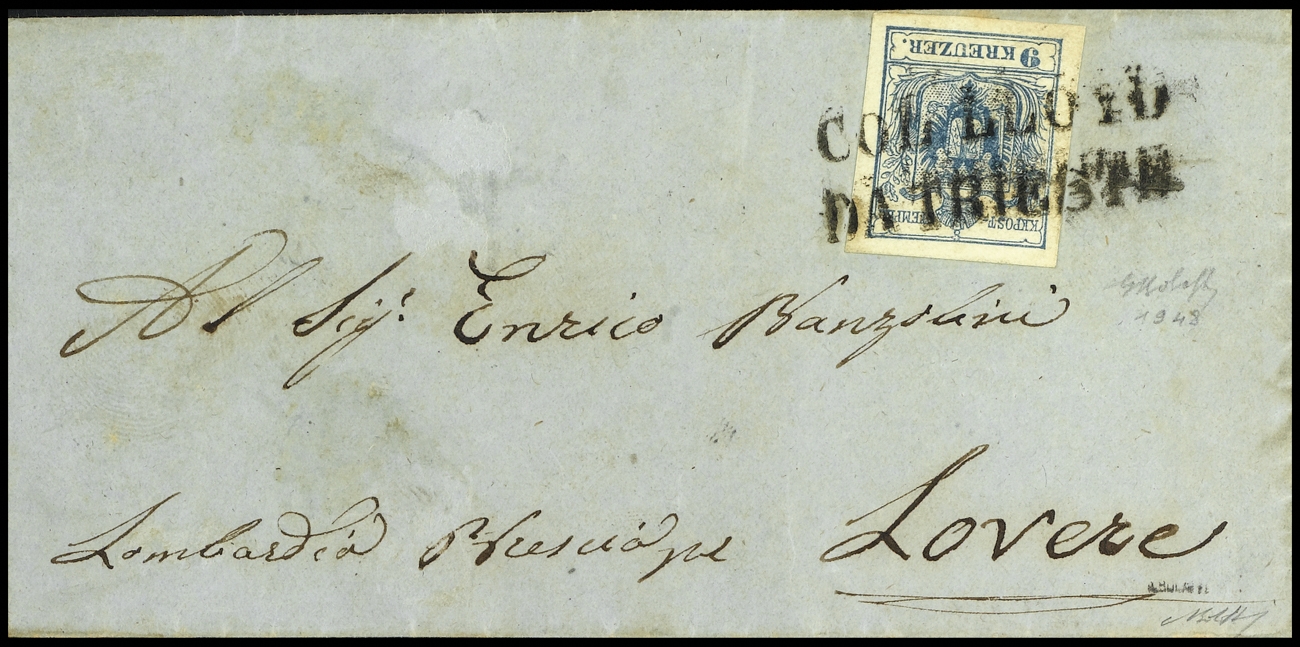 9 KREUZER.
KKPOST STEMPEL
COL LLOYD
DA TRIESTE
Al Sigr. Enrico Banzolini
1948
Lombardia Brescia per Lovere